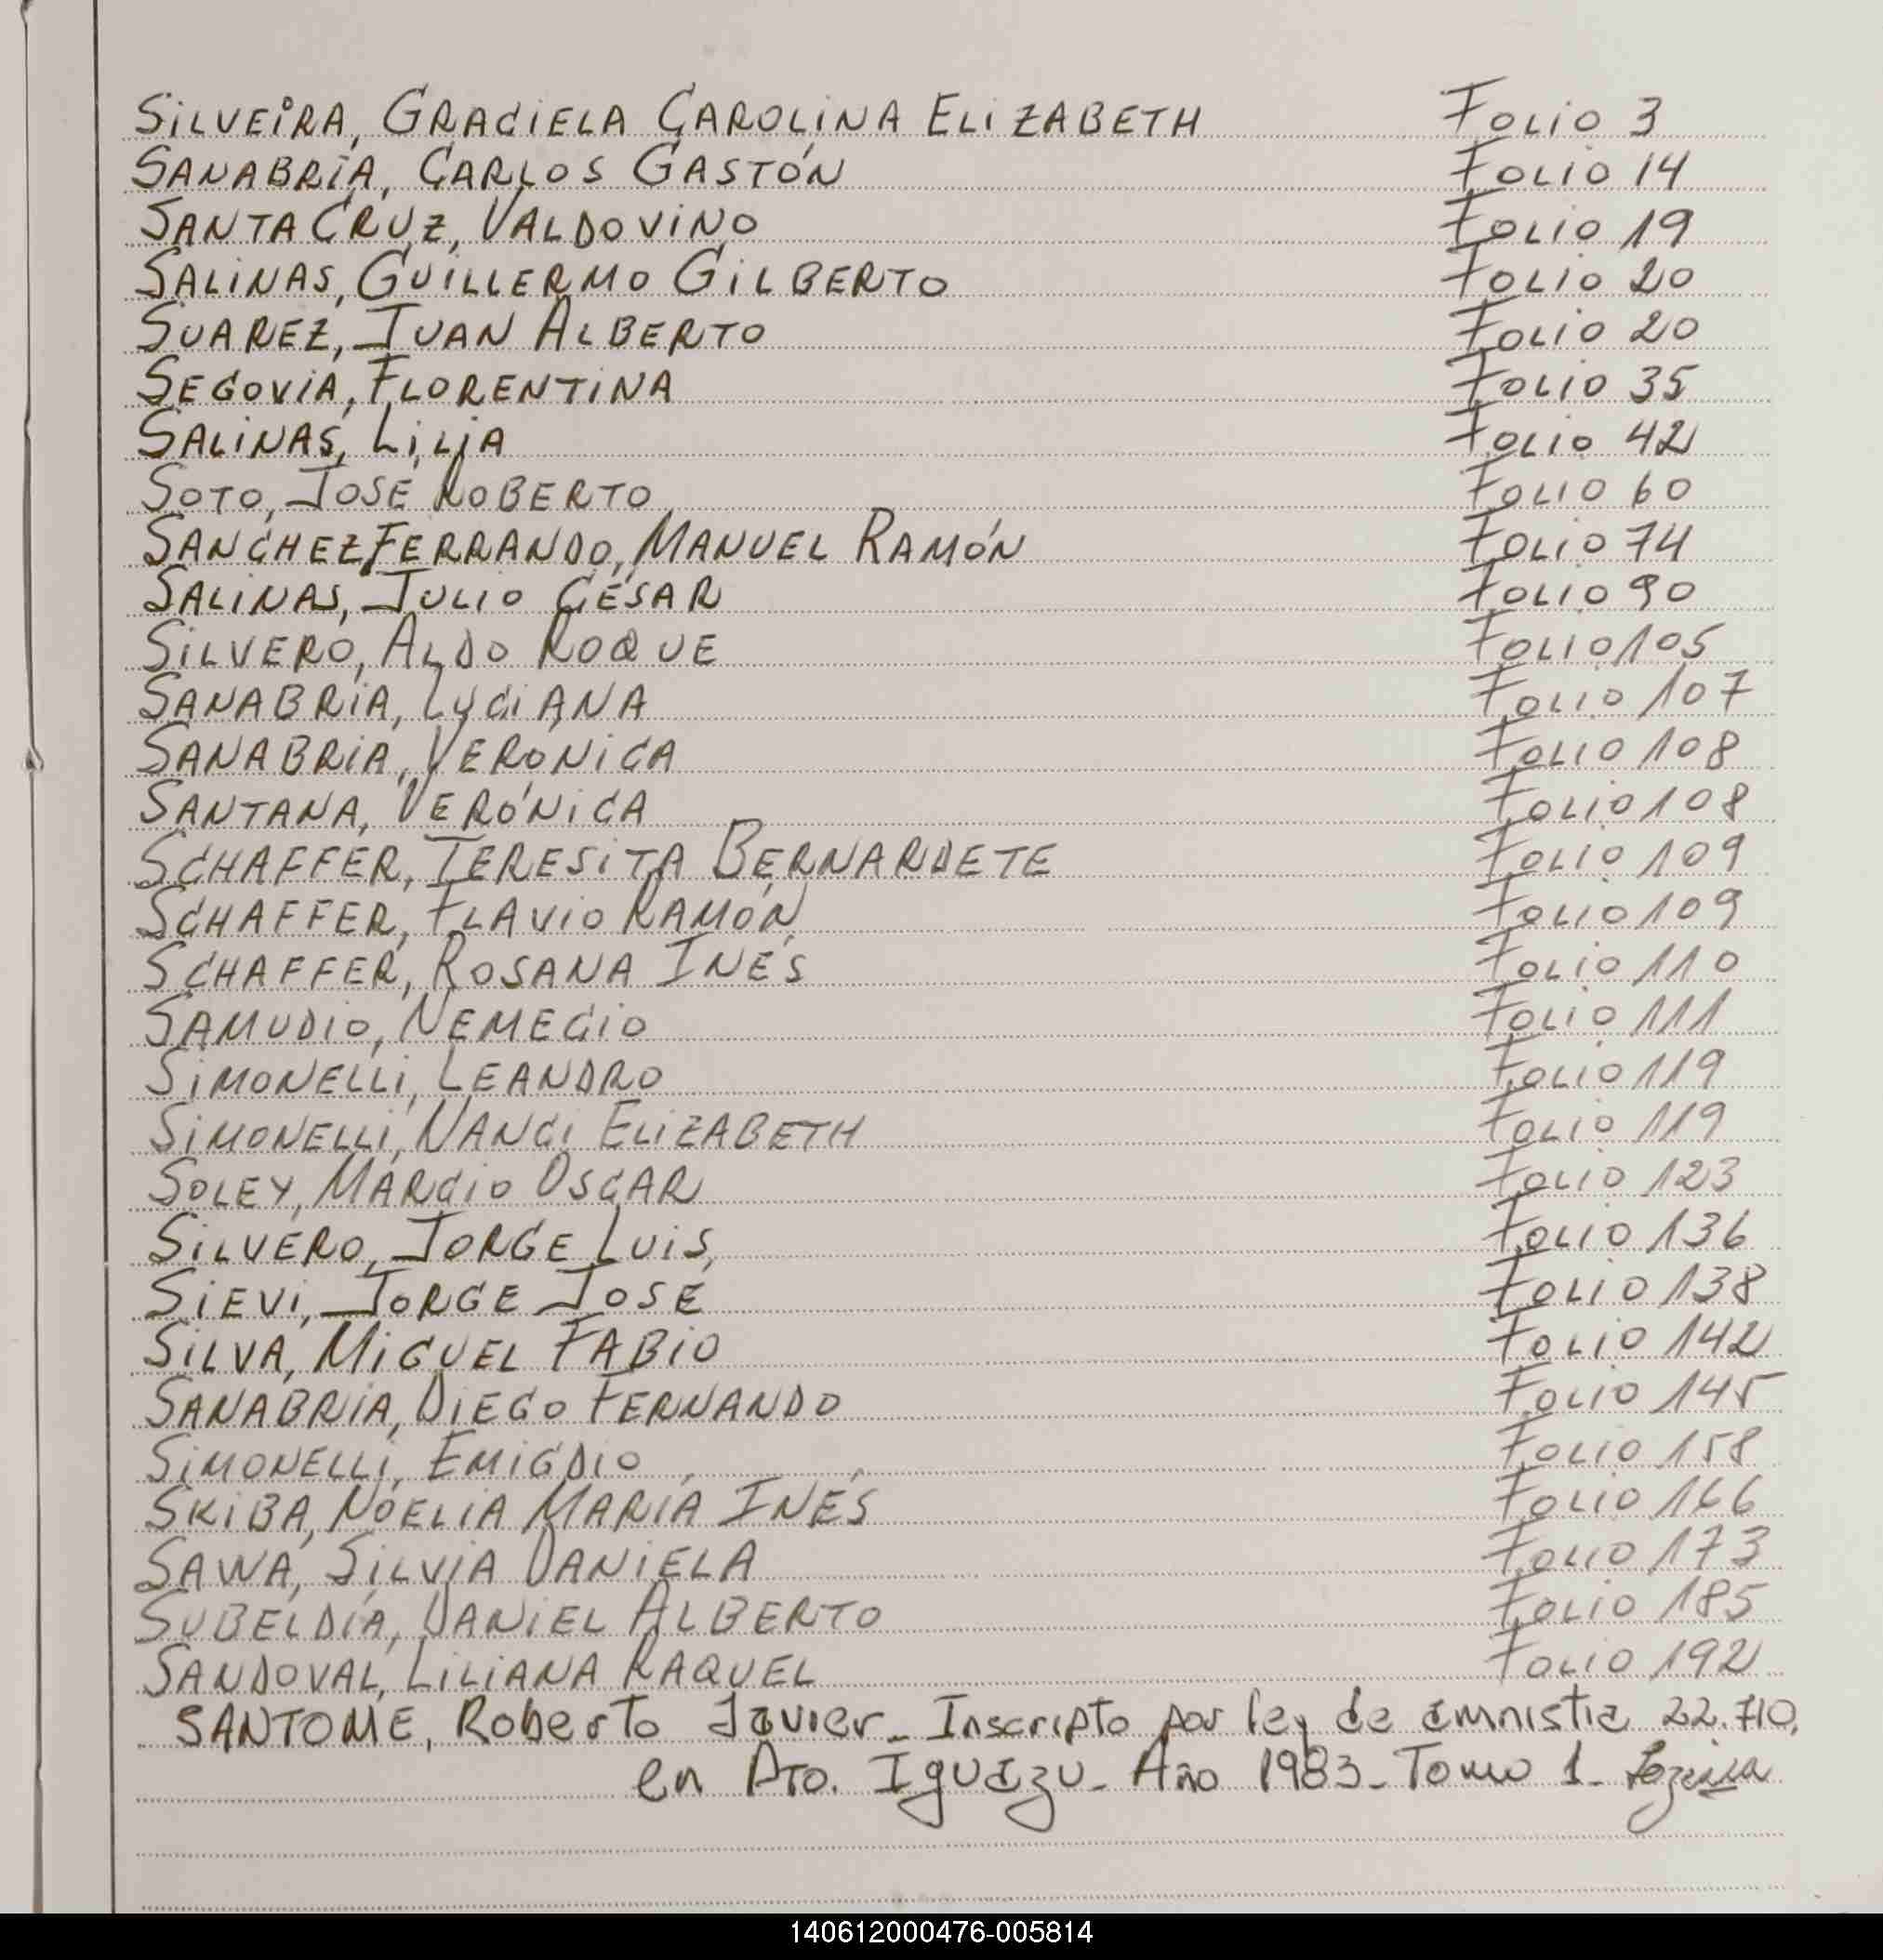 SILVEIRA, GRACIELA CAROLINA ELIZABETH Folio 3
SANABRIA, CARLOS GASTÓN Folio 14
SANTA CRUZ, VALDOVINO Folio 19
SALINAS, GUILLERMO GILBERTO Folio 20
SUAREZ, JUAN ALBERTO Folio 20
SEGOVIA, FLORENTINA Folio 35
SALINAS, LILIA Folio 42
SOTO, JOSÉ ROBERTO Folio 60
SANCHEZ FERRANDO, MANUEL RAMÓN Folio 74
SALINAS, JULIO CÉSAR Folio 90
SILVERO, ALDO ROQUE Folio 105
SANABRIA, LUCIANA Folio 107
SANABRIA, VERÓNICA Folio 108
SANTANA, VERÓNICA Folio 108
SCHAFFER, TERESITA BERNARDETE Folio 109
SCHAFFER, FLAVIO RAMÓN Folio 109
SCHAFFER, ROSANA INÉS Folio 110
SAMUDIO, NEMECIO Folio 111
SIMONELLI, LEANDRO Folio 119
SIMONELLI, NANCI ELIZABETH Folio 119
SOLEY, MARCIO OSCAR Folio 123
SILVERO, JORGE LUIS, Folio 136
SIEVI, JORGE JOSÉ Folio 138
SILVA, MIGUEL FABIO Folio 142
SANABRIA, DIEGO FERNANDO Folio 145
SIMONELLI, EMIGDIO Folio 158
SKIBA, NOELIA MARÍA INÉS Folio 166
SAWA, SILVIA DANIELA Folio 173
SUBELDÍA, DANIEL ALBERTO Folio 185
SANDOVAL, LILIANA RAQUEL Folio 192
SANTOME, Roberto Javier_ Inscripto por ley de amnistia 22.710,
en Pto. Iguazu_ Año 1983_ Tomo 1_
140612000476-005814